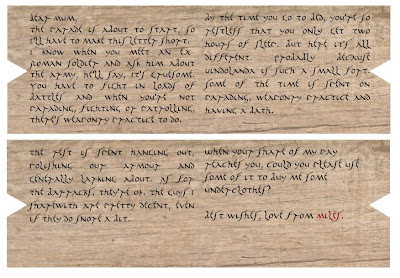 dear mum,
the parade is about to start, so
i'll have to make this letter short.
i know when you meet an ex
roman soldier and ask him about
the army, he'll say, it's gruesome.
you have to fight in loads of
battles and when you're not
parading, fighting or patrolling,
there's weaponry practice to do.
by the time you go to bed, you're so
restless that you only get two
hours of sleep. but here it's all
different. probably because
vindolanda is such a small fort.
some of the time is spent on
parading, weaponry practice and
having a bath.
the rest is spent hanging out,
polishing our armour and
generally larking about. as for
the barracks, they're ok. the guys i
share with are pretty decent, even
if they do snore a bit.
when your share of my pay
reaches you, could you please use
some of it to buy me some
underclothes?
best wishes, love from miles.